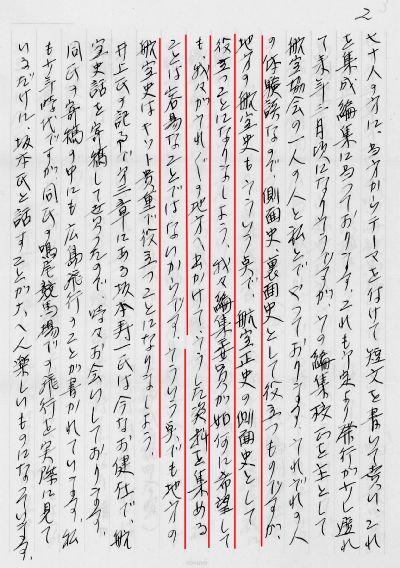 2
七十人の方に、当方からテーマを付けて短文を書いて貰い、これ
を集成編集に当っております。これも予定より発行が少し遅れ
て来年二月頃になりそうですが、この編集校正を主として
航空協会の一人の人と私とでやっております。それぞれの人
の体験談なので側面史、裏面史として役立つものですが、
地方の航空史もそういう点で、航空正史の側面史として
役立つことになりましょう。我々編集委員が如何に希望して
も、我々がそれぞれの地方へ出かけて、そうした資料を集める
ことは容易なことではないからです。そういう点でも地方の
航空史はキット貴重で役立つことになりましょう
井上氏の記事で第三章にある坂本寿一氏は今なお健在で、航
空史話を寄稿して貰ったので、時々お会いしております。
同氏の寄稿の中にも広島飛行のことが書かれています。私
も少年時代ですが同氏の鳴尾競馬場での飛行を実際に見て
いるだけに、坂本氏と話すことが大へん楽しいものになっています。